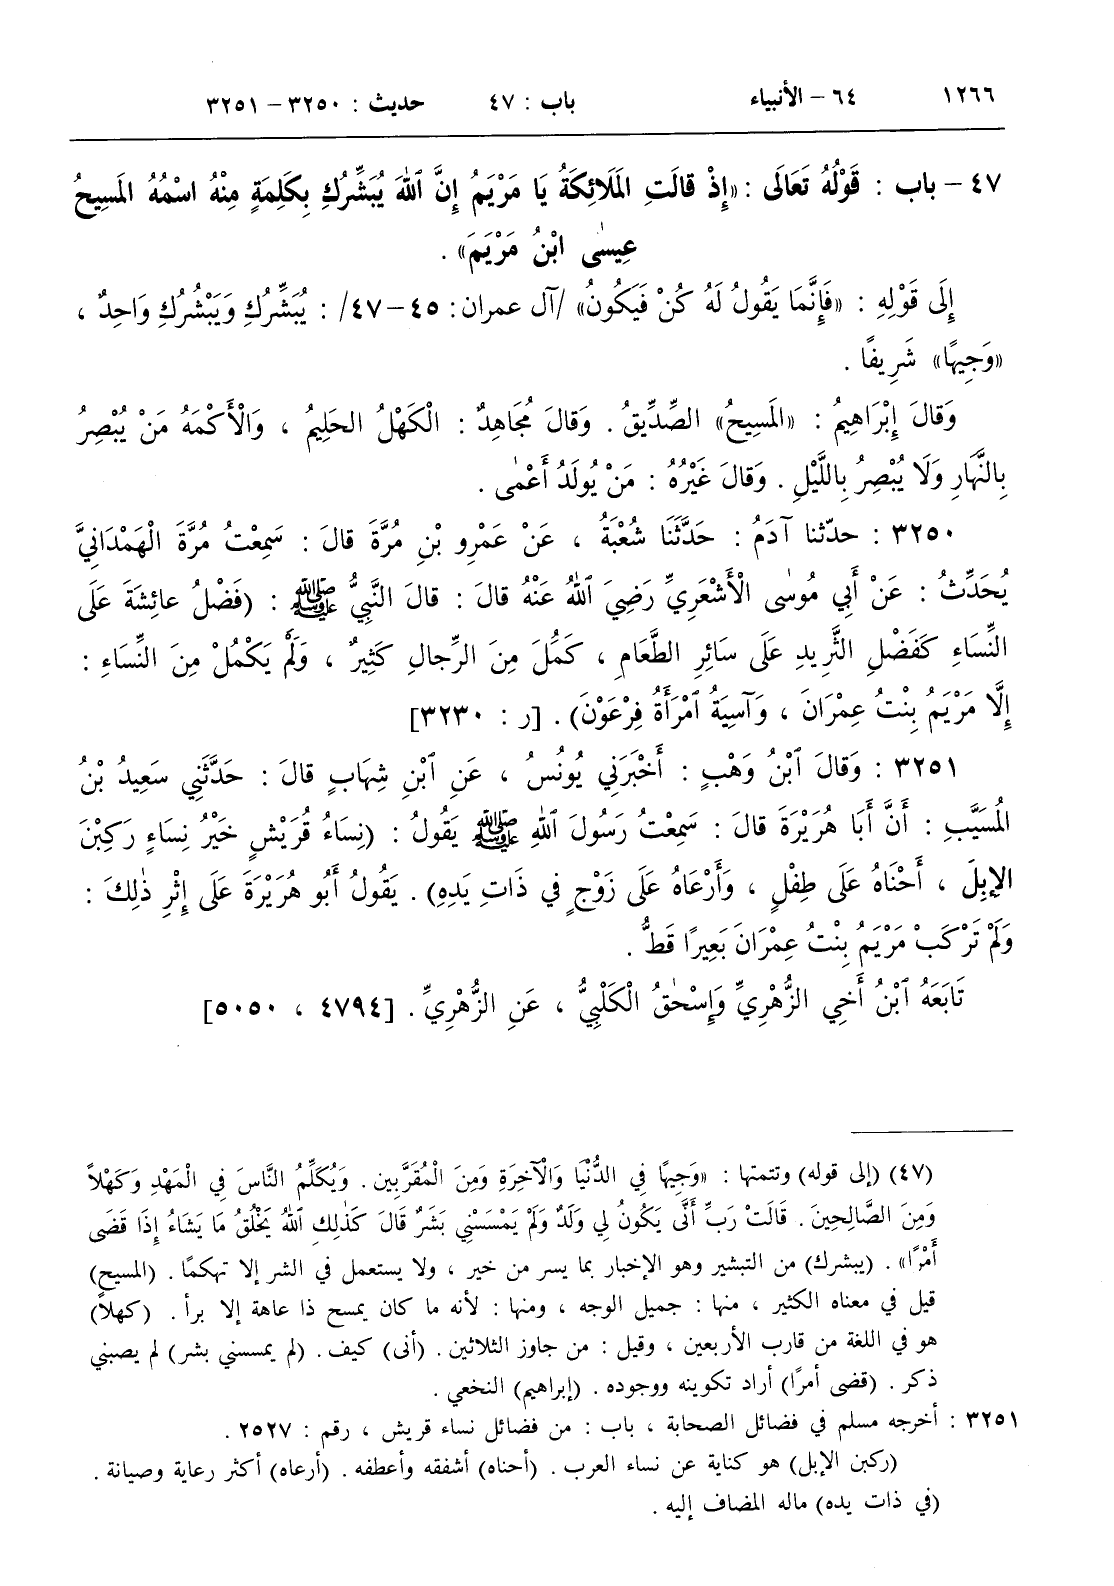 ١٢٦٦ ٦٤ - الأنبياء باب : ٤٧ حديث : ٣٢٥٠ - ٣٢٥١
٤٧ - باب : قَوْلُهُ تَعَالَى : «إِذْ قالَتِ المَلَائِكَةُ يَا مَرْيَمُ إِنَّ ٱللهَ يُبَشِّرُكِ بِكَلِمَةٍ مِنْهُ اسْمُهُ المَسِيحُ
عِيسٰى ابْنُ مَرْيَمَ» .
إِلَى قَوْلِهِ : «فَإِنَّمَا يَقُولُ لَهُ كُنْ فَيَكُونُ» /آل عمران: ٤٥-٤٧/ : يُبَشِّرُكِ وَيَبْشُرُكِ وَاحِدٌ ،
«وَجِيهًا» شَرِيفًا .
وَقالَ إِبْرَاهِيمُ : «المَسِيحُ» الصِّدِّيقُ. وَقالَ مُجَاهِدٌ : الْكَهْلُ الحَلِيمُ ، وَالْأَكْمَهُ مَنْ يُبْصِرُ
بِالنَّهَارِ وَلَا يُبْصِرُ بِاللَّيْلِ . وَقالَ غَيْرُهُ : مَنْ يُولَدُ أَعْمٰى .
٣٢٥٠ : حدّثنا آدَمُ : حَدَّثَنَا شُعْبَةُ ، عَنْ عَمْرِو بْنِ مُرَّةَ قالَ : سَمِعْتُ مُرَّةَ الْهَمْدَانِيَّ
يُحَدِّثُ : عَنْ أَبِي مُوسٰى الْأَشْعَرِيِّ رَضِيَ ٱللهُ عَنْهُ قالَ : قالَ النَّبِيُّ ﷺ : (فَضْلُ عائِشَةَ عَلَى
النِّسَاءِ كَفَضْلِ الثَّرِيدِ عَلَى سَائِرِ الطَّعَامِ ، كَمُلَ مِنَ الرِّجالِ كَثِيرٌ ، وَلَمْ يَكْمُلْ مِنَ النِّسَاءِ :
إِلَّا مَرْيَمُ بِنْتُ عِمْرَانَ ، وَآسِيَةُ ٱمْرَأَةُ فِرْعَوْنَ) . [ر : ٣٢٣٠]
٣٢٥١ : وَقالَ ٱبْنُ وَهْبٍ : أَخْبَرَنِي يُونُسُ ، عَنِ ٱبْنِ شِهَابٍ قالَ : حَدَّثَنِي سَعِيدُ بْنُ
المُسَيَّبِ : أَنَّ أَبَا هُرَيْرَةَ قالَ : سَمِعْتُ رَسُولَ ٱللهِ ﷺ يَقُولُ : (نِسَاءُ قُرَيْشٍ خَيْرُ نِسَاءٍ رَكِبْنَ
الإِبِلَ ، أَحْنَاهُ عَلَى طِفْلٍ ، وَأَرْعَاهُ عَلَى زَوْجٍ في ذَاتِ يَدِهِ) . يَقُولُ أَبُو هُرَيْرَةَ عَلَى إِثْرِ ذٰلِكَ :
وَلَمْ تَرْكَبْ مَرْيَمُ بِنْتُ عِمْرَانَ بَعِيرًا قَطُّ .
تَابَعَهُ ٱبْنُ أَخِي الزُّهْرِيِّ وَإِسْحٰقُ الْكَلْبِيُّ ، عَنِ الزُّهْرِيِّ . [٤٧٩٤ ، ٥٠٥٠]
(٤٧) (إلى قوله) وتتمتها : «وَجِيهًا فِي الدُّنْيَا وَالْآخِرَةِ وَمِنَ الْمُقَرَّبِين . وَيُكَلِّمُ النَّاسَ فِي الْمَهْدِ وَكَهْلاً
وَمِنَ الصَّالِحِينَ . قَالَتْ رَبِّ أَنَّى يَكُونُ لِي وَلَدٌ وَلَمْ يَمْسَسْنِي بَشَرٌ قَالَ كَذٰلِكِ ٱللهُ يَخْلُقُ مَا يَشَاءُ إِذَا قَضَى
أَمْرًا» . (يبشرك) من التبشير وهو الإخبار بما يسر من خير ، ولا يستعمل في الشر إلا تهكمًا . (المسيح)
قيل في معناه الكثير ، منها : جميل الوجه ، ومنها : لأنه ما كان يمسح ذا عاهة إلا برأ . (كهلاً)
هو في اللغة من قارب الأربعين ، وقيل : من جاوز الثلاثين . (أنى) كيف . (لم يمسسني بشر) لم يصبني
ذكر . (قضى أمرًا) أراد تكوينه ووجوده . (إبراهيم) النخعي .
٣٢٥١ : أخرجه مسلم في فضائل الصحابة ، باب : من فضائل نساء قريش ، رقم : ٢٥٢٧ .
(ركبن الإبل) هو كناية عن نساء العرب . (أحناه) أشفقه وأعطفه . (أرعاه) أكثر رعاية وصيانة .
(في ذات يده) ماله المضاف إليه .